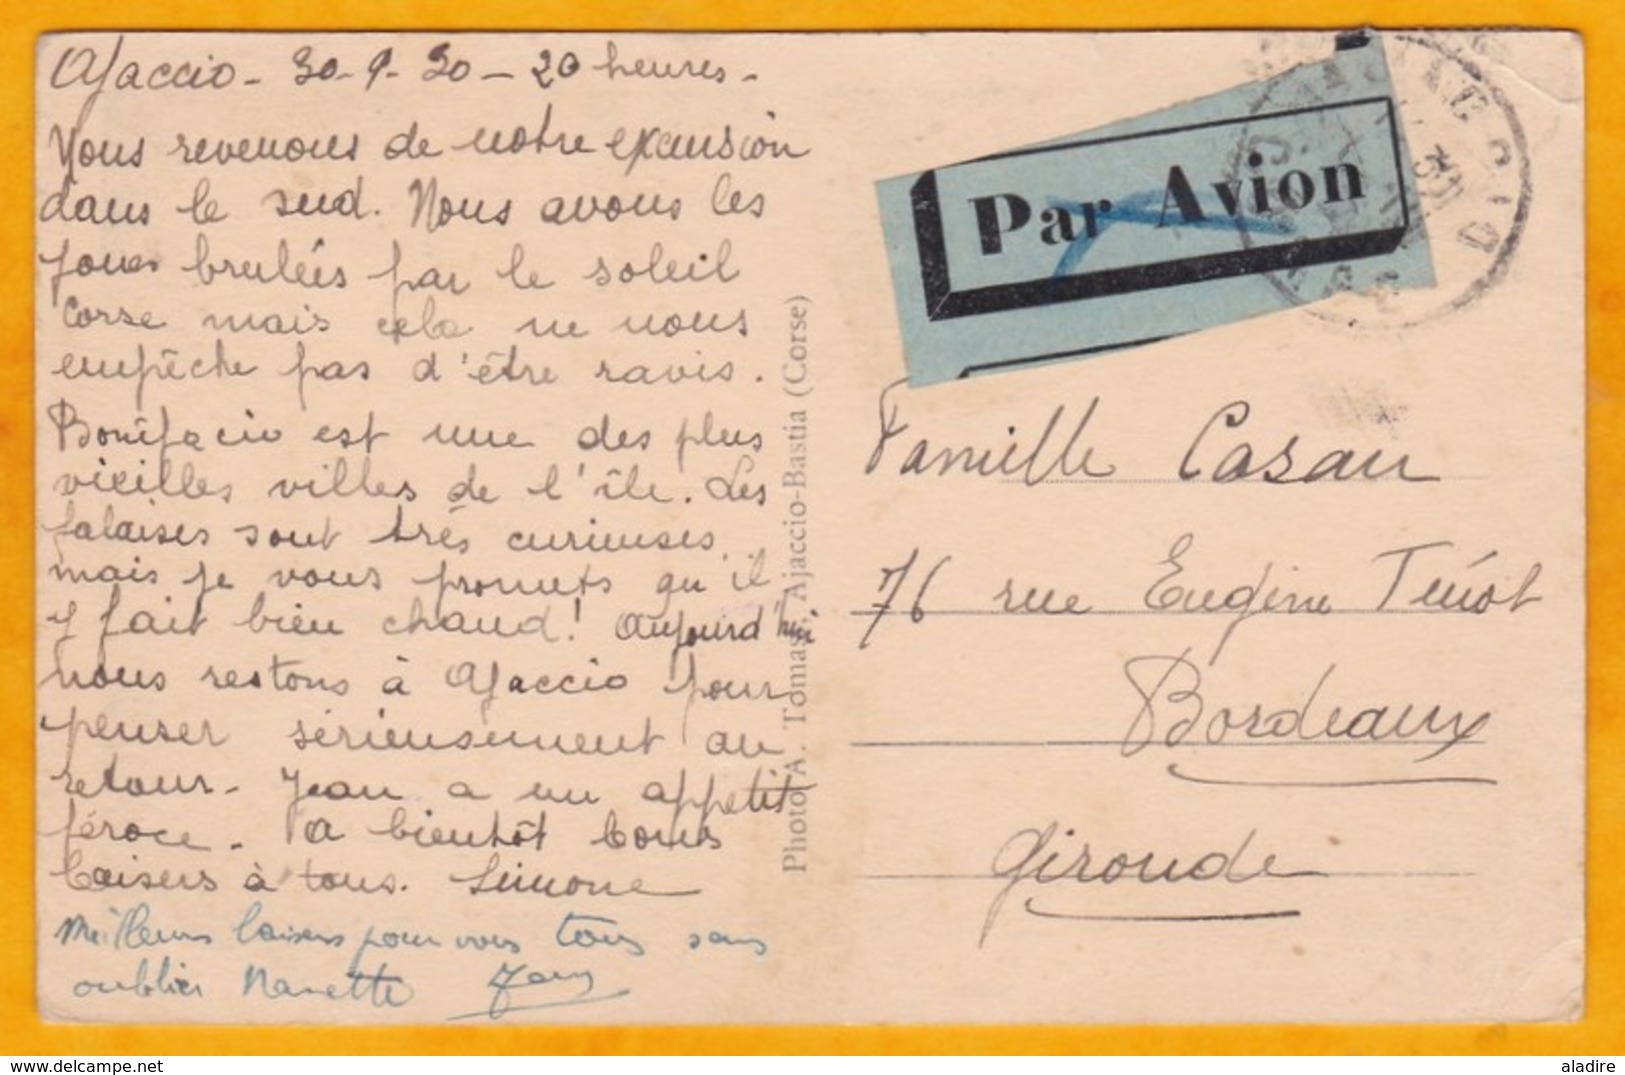 Ajaccio - 30-9-30 - 20 heures -
Nous revenons de notre excursion
dans le sud. Nous avons les
joues brulées par le soleil
corse mais cela ne nous
empêche pas d'être ravis.
Bonifacio est une des plus
vieilles villes de l'île. Les
falaises sont très curieuses,
mais je vous promets qu'il
y fait bien chaud! Aujourd'hui
nous restons à Ajaccio pour
penser sérieusement au
retour. Jean a un appetit
féroce. A bientôt bons
baisers à tous. Simone
Meilleurs baisers pour vous tous sans
oublier Nanette
Photo A. Tomasi, Ajaccio-Bastia (Corse)
Par Avion
Famille Casau
76 rue Eugène Ténot
Bordeaux
Gironde
aladire